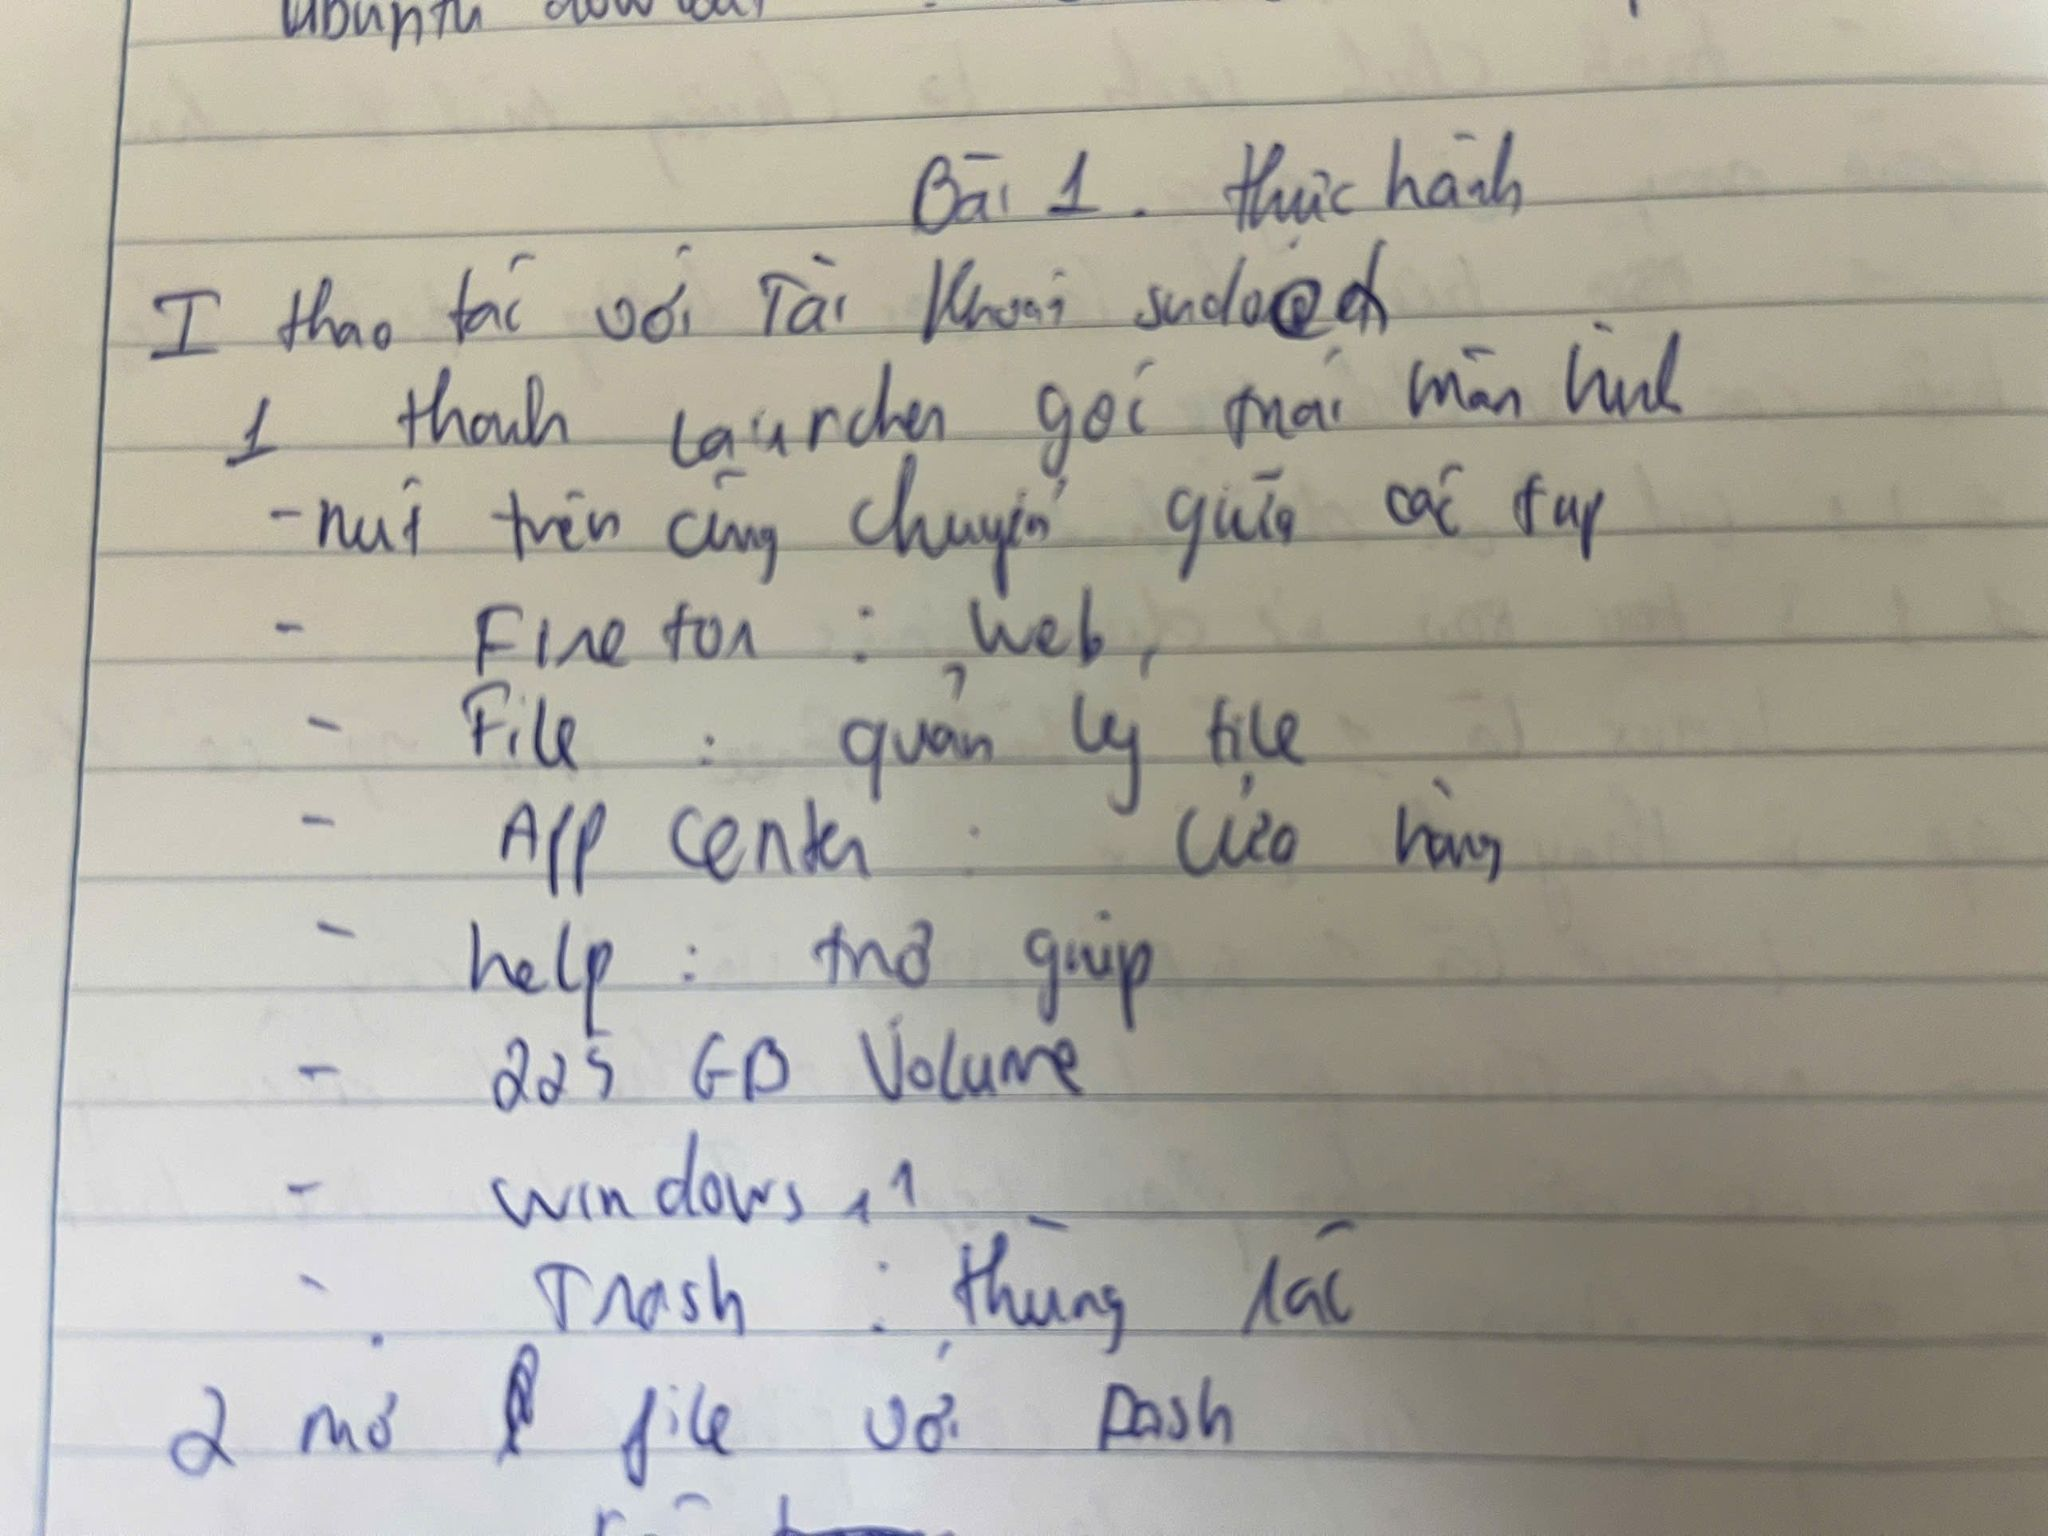 Ubuntu
Bài 1. thực hành
I thao tác với Tài Khoản
1 thanh Launcher góc trái màn hình
- nút trên cùng chuyển giữa các
- Firefox : web,
- File : quản lý file
- App center : cửa hàng
- help : trợ giúp
- 225 GB Volume
- windows 11
- Trash : thùng rác
2 mở file với Dash